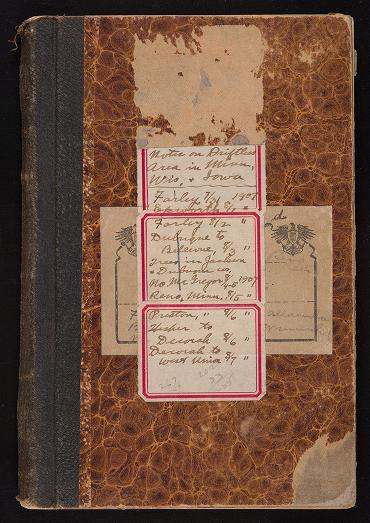 Notes on Driftless
Area in Minn,
Wis, & Iowa
Farley 7/31 1907
Epworth 8/1 "
Farley 8/2 "
Dubuque to
Bellevue, 8/3 "
Trees in Jackson
& Dubuque co,
No. McGregor 8/4-5 1907
Reno, Minn, 8/5 "
Preston, " 8/6 "
to
Decorah 8/6 "
Decorah to
West Union 8/7 "